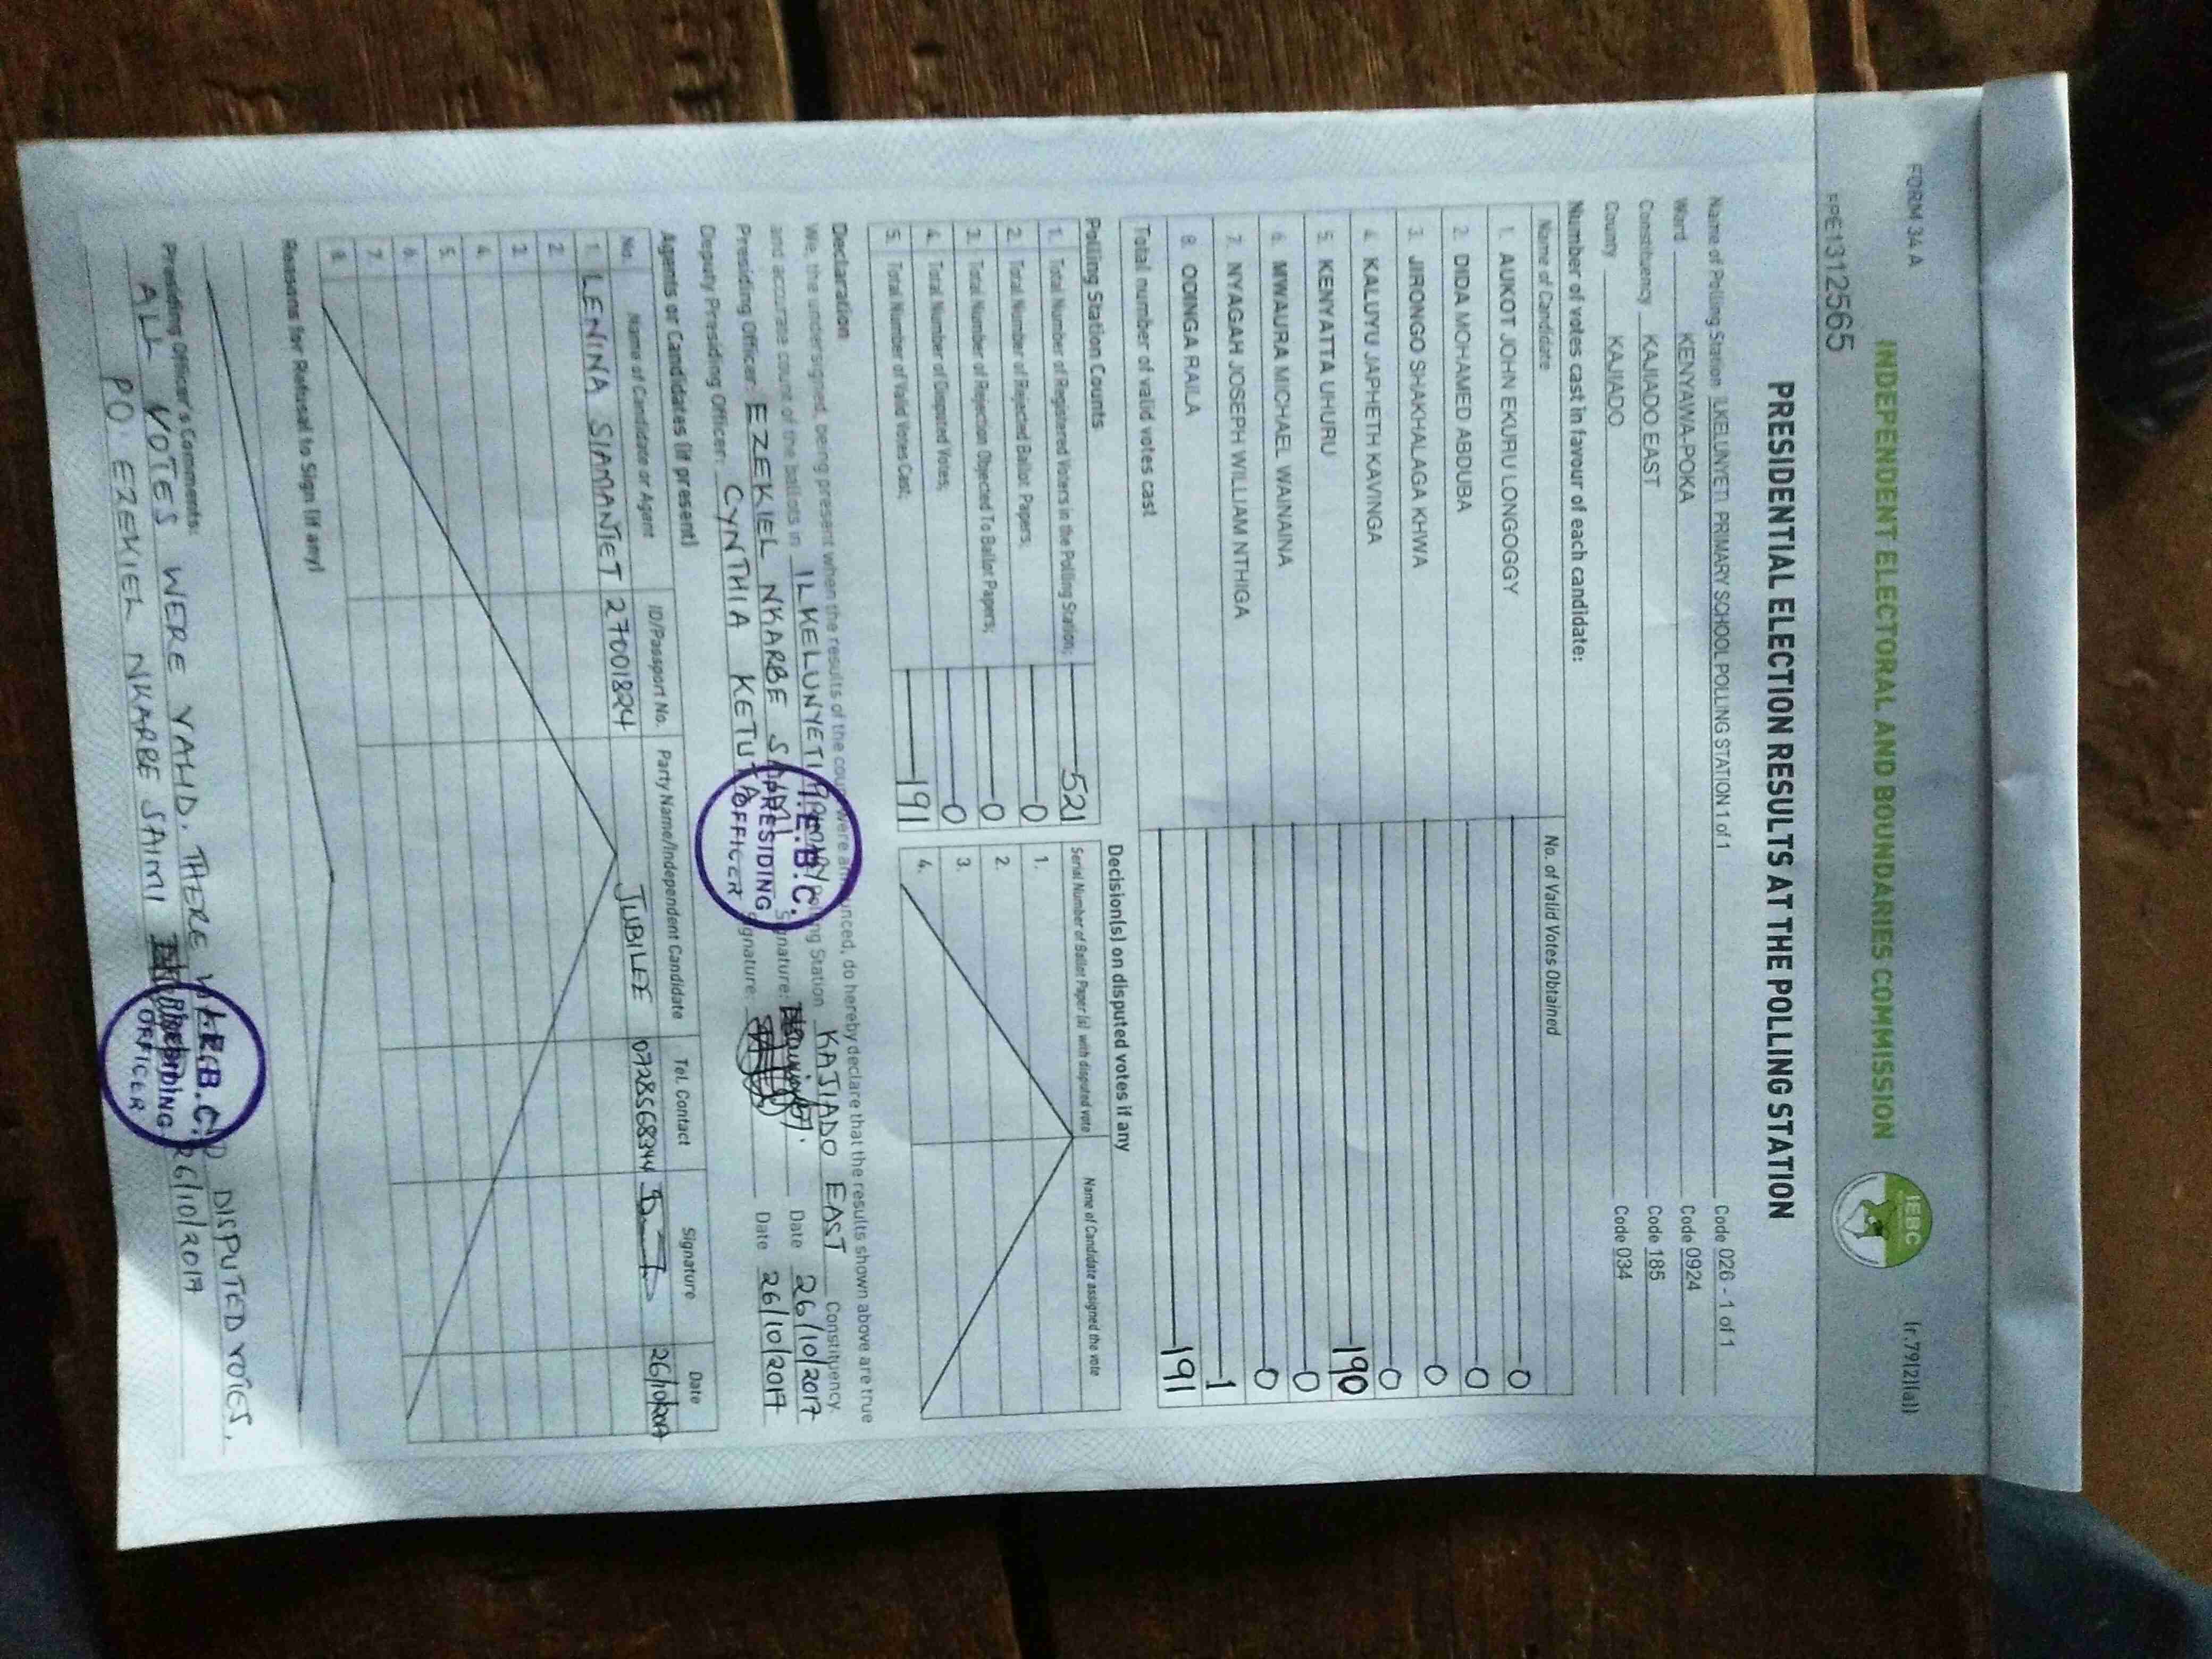 FORM 34 A
(r.79(2)(a))
INDEPENDENT ELECTORAL AND BOUNDARIES COMMISSION
IEBC
PRESIDENTIAL ELECTION RESULTS AT THE POLLING STATION
Name of Polling Station ILKELUNYETI PRIMARY SCHOOL POLLING STATION 1 of 1 Code 026 - 1 of 1
Ward KENYAWA-POKA Code 0924
Constituency KAJIADO EAST Code 185
County KAJIADO Code 034
Number of votes cast in favour of each candidate:
Name of Candidate No. of Valid Votes Obtained
1. AUKOT JOHN EKURU LONGOGGY 0
2. DIDA MOHAMED ABDUBA 0
3. JIRONGO SHAKHALAGA KHWA 0
4. KALUYU JAPHETH KAVINGA 0
5. KENYATTA UHURU 190
6. MWAURA MICHAEL WAINAINA 0
7. NYAGAH JOSEPH WILLIAM NTHIGA 0
8. ODINGA RAILA 1
Total number of valid votes cast 191
Polling Station Counts
1. Total Number of Registered Voters in the Polling Station; 521
2. Total Number of Rejected Ballot Papers; 0
3. Total Number of Rejection Objected To Ballot Papers; 0
4. Total Number of Disputed Votes; 0
5. Total Number of Valid Votes Cast; 191
Decision(s) on disputed votes if any
Serial Number of Ballot Paper (s) with disputed vote Name of Candidate assigned the vote
1.
2.
3.
4.
Declaration
We, the undersigned, being present when the results of the count were announced, do hereby declare that the results shown above are true
and accurate count of the ballots in ILKELUNYETI PRIMARY Polling Station KAJIADO EAST Constituency.
Presiding Officer: EZEKIEL NKARBE SAIMI Signature: Date 26/10/2017
Deputy Presiding Officer: CYNTHIA KETUTA Signature: Date 26/10/2017
I.E.B.C.
PRESIDING
OFFICER
Agents or Candidates (if present)
No. Name of Candidate or Agent ID/Passport No. Party Name/Independent Candidate Tel. Contact Signature Date
1. LENINA SIAMANTET 27001824 JUBILEE 0728568344 26/10/2017
2.
3.
4.
5.
6.
7.
8.
Reasons for Refusal to Sign (if any)
Presiding Officer's Comments:
ALL VOTES WERE VALID. THERE DISPUTED VOTES.
PO EZEKIEL NKARBE SAIMI 26/10/2017
I.E.B.C.
PRESIDING
OFFICER